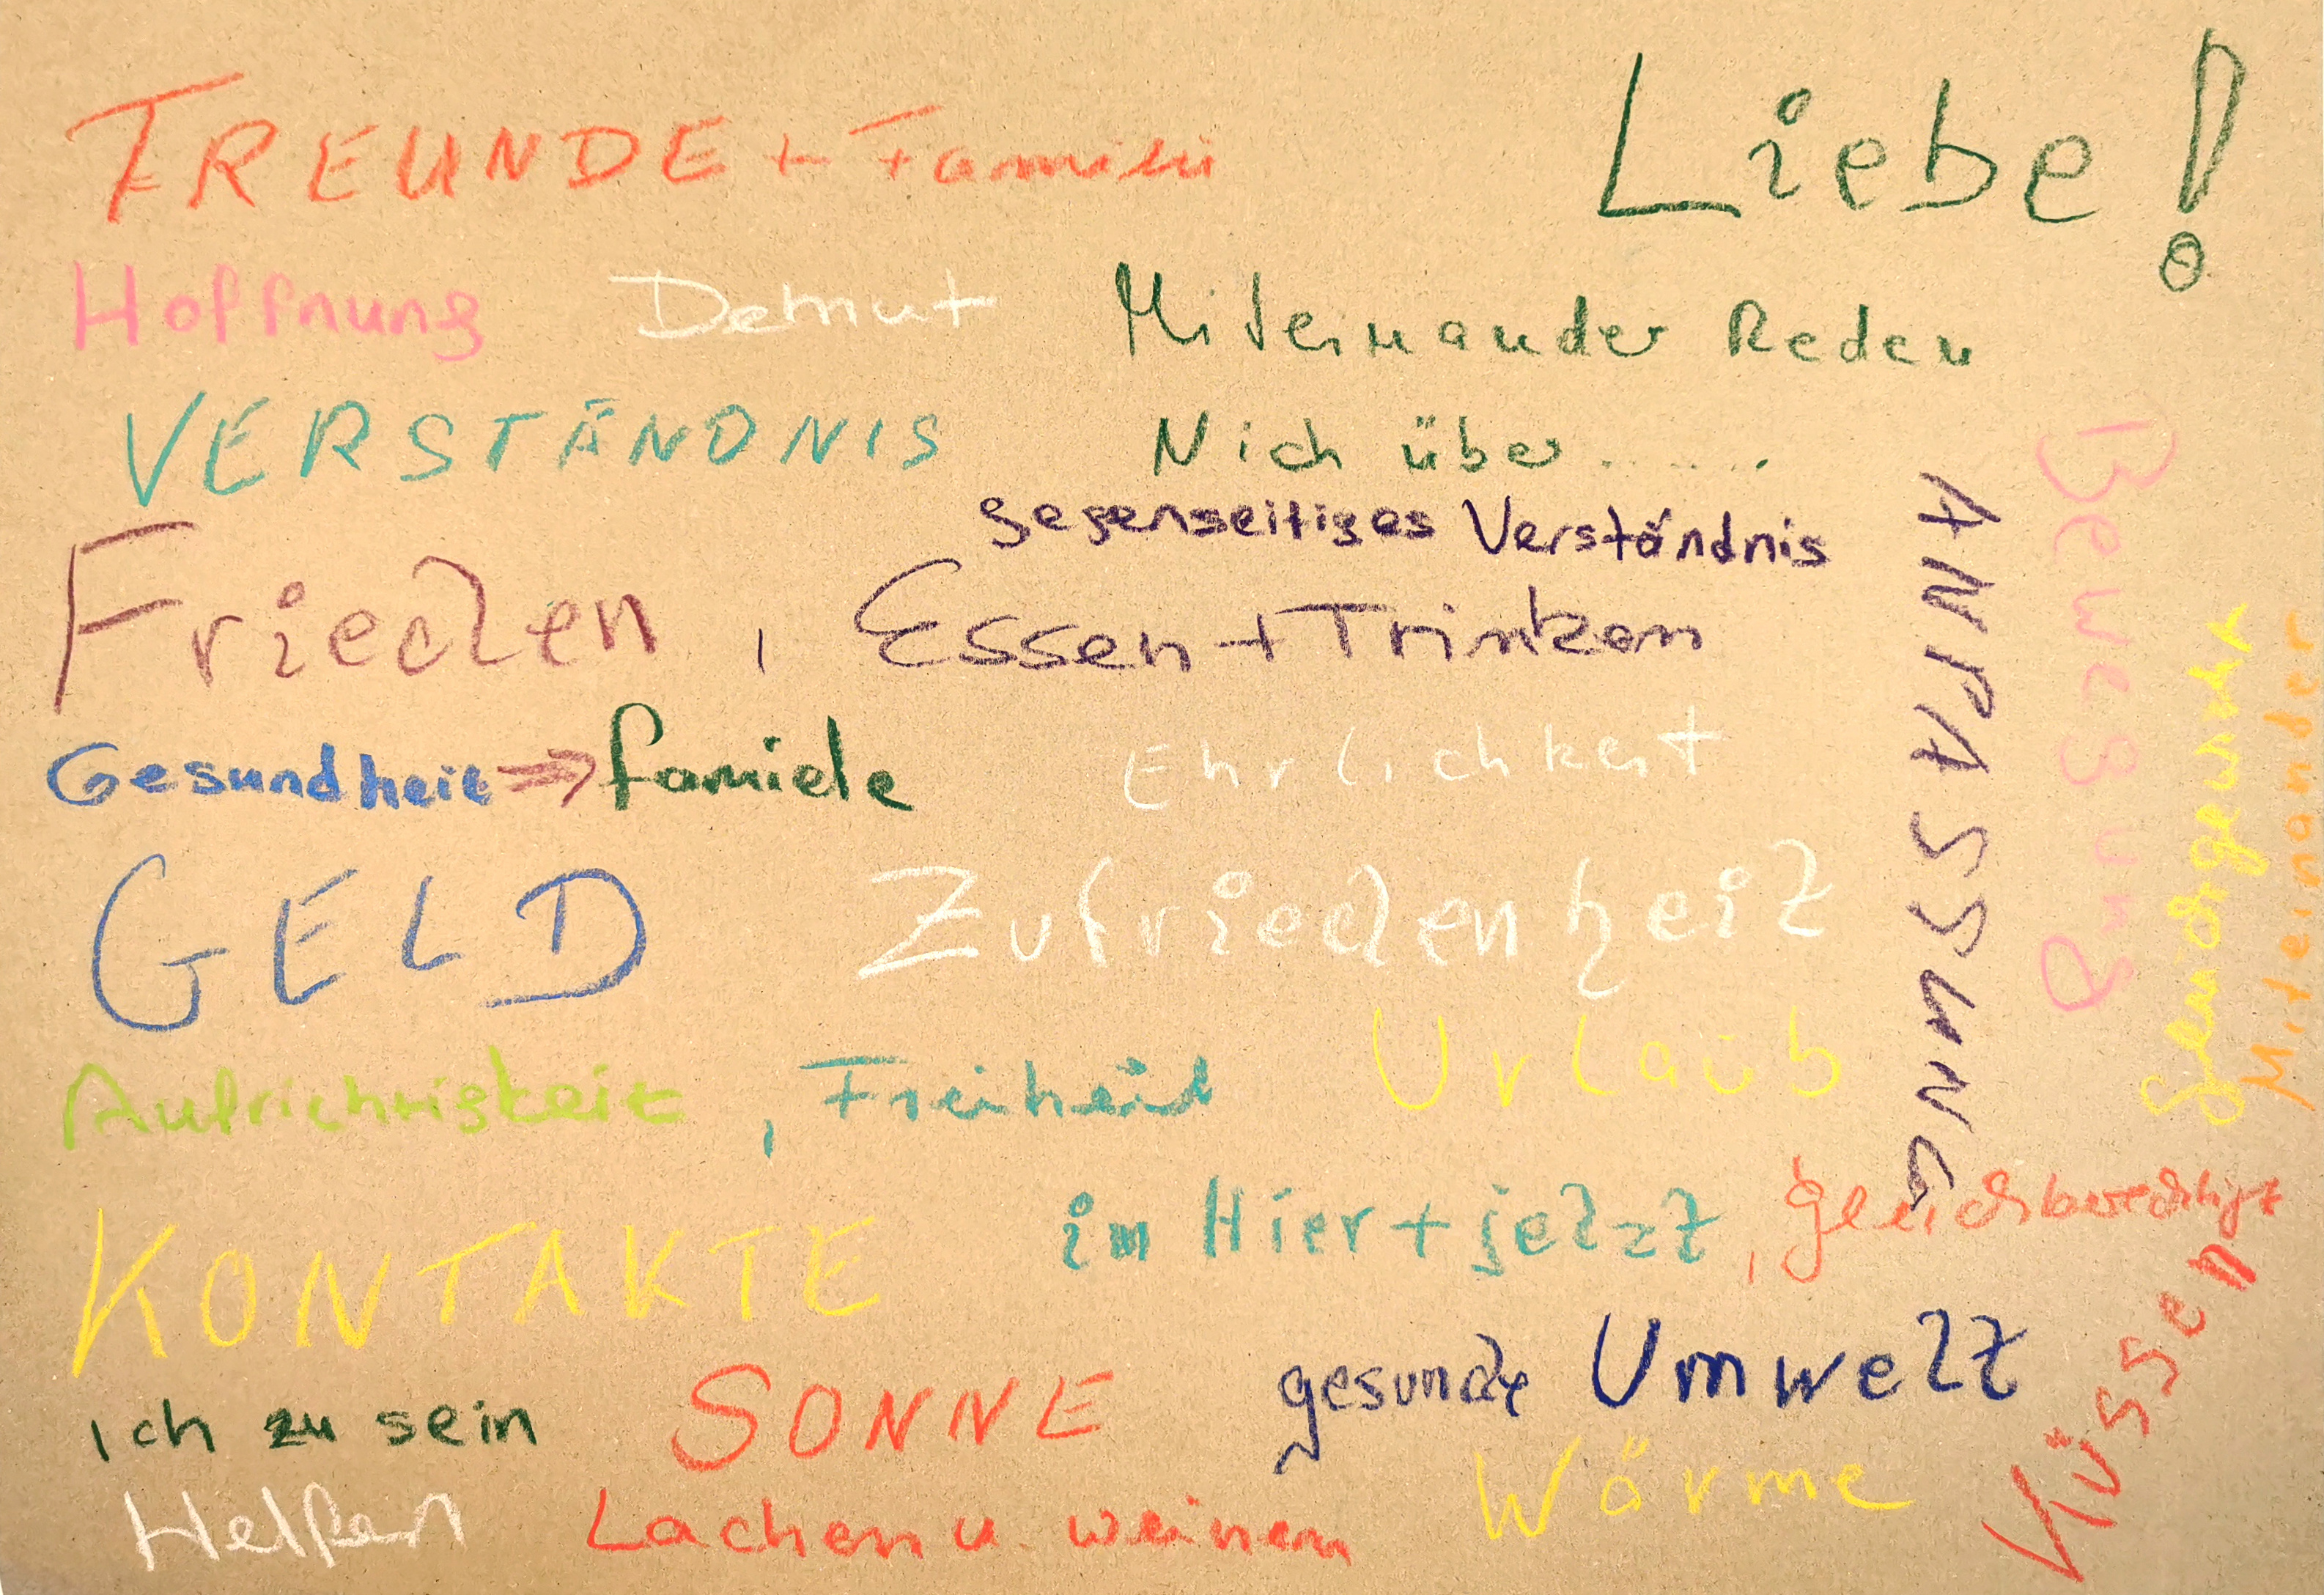 FREUNDE + Familie
Liebe!
Hoffnung
Demut
Miteinander Reden
Nich über.......
VERSTÄNDNIS
gegenseitiges Verständnis
Frieden, Essen + Trinken
Gesundheit ⇒ familie
Ehrlichkeit
GELD
Zufriedenheit
Aufrichtigkeit, Freiheit
Urlaub
KONTAKTE
im Hier + jetzt, gleichberechtigt
ich zu sein
SONNE
gesunde Umwelt
Helfen
Lachen u. weinen
Wärme
Küssen
ANPASSUNG
Bewegung
Miteinander